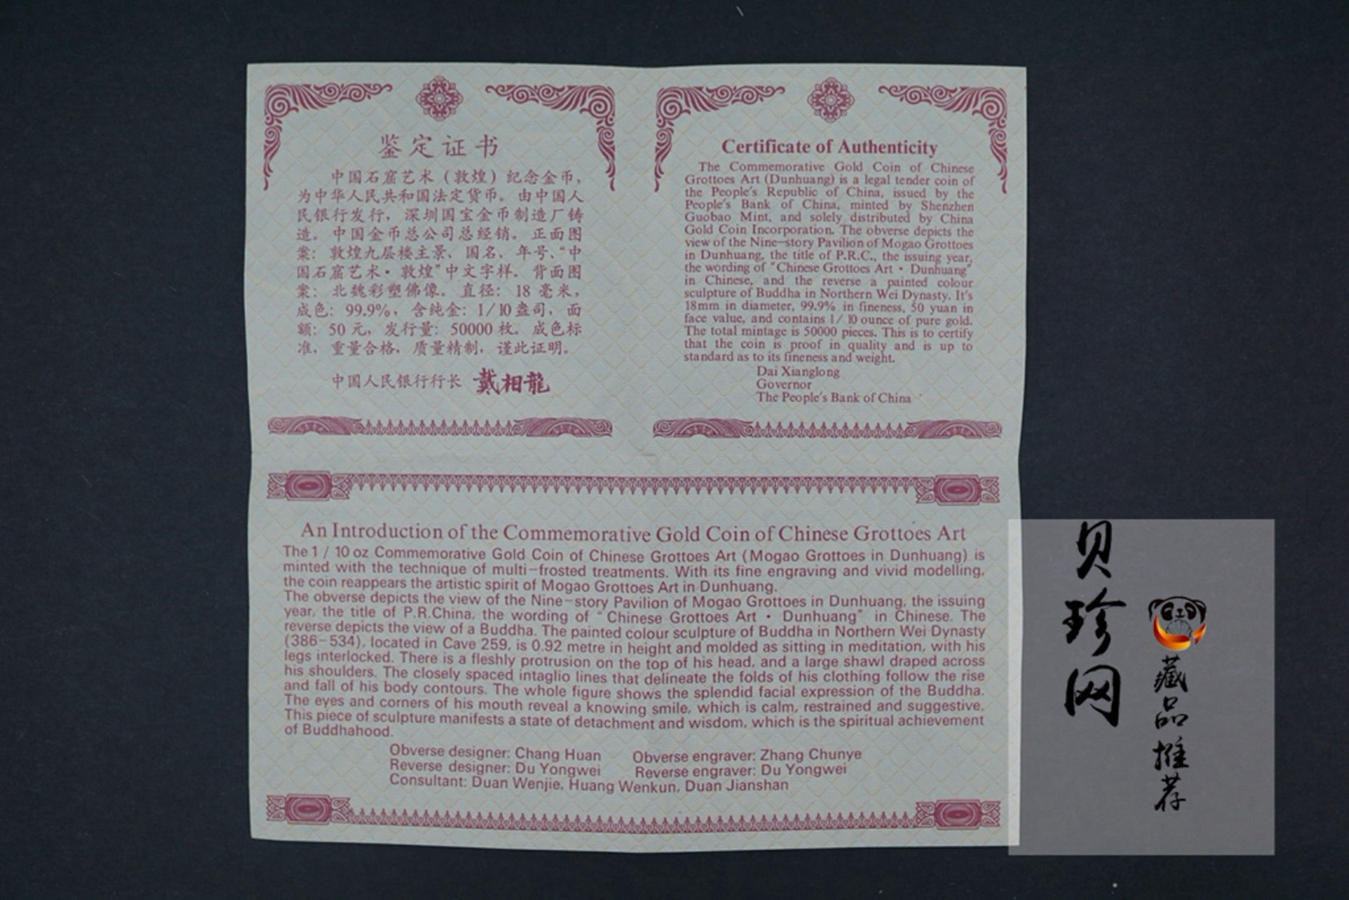 鉴定证书
中国石窟艺术（敦煌）纪念金币，
为中华人民共和国法定货币。由中国人
民银行发行，深圳国宝金币制造厂铸
造。中国金币总公司总经销。正面图
案：敦煌九层楼主景，国名、年号、“中
国石窟艺术·敦煌”中文字样。背面图
案：北魏彩塑佛像。直径：18 毫米，
成色：99.9%，含纯金：1/10 盎司，面
额：50 元，发行量：50000 枚。成色标
准，重量合格，质量精制，谨此证明。
中国人民银行行长 戴相龍
Certificate of Authenticity
The Commemorative Gold Coin of Chinese
Grottoes Art (Dunhuang) is a legal tender coin of
the People's Republic of China, issued by the
People's Bank of China, minted by Shenzhen
Guobao Mint, and solely distributed by China
Gold Coin Incorporation. The obverse depicts the
view of the Nine-story Pavilion of Mogao Grottoes
in Dunhuang, the title of P.R.C., the issuing year,
the wording of "Chinese Grottoes Art · Dunhuang"
in Chinese, and the reverse a painted colour
sculpture of Buddha in Northern Wei Dynasty. It's
18mm in diameter, 99.9% in fineness, 50 yuan in
face value, and contains 1/10 ounce of pure gold.
The total mintage is 50000 pieces. This is to certify
that the coin is proof in quality and is up to
standard as to its fineness and weight.
Dai Xianglong
Governor
The People's Bank of China
An Introduction of the Commemorative Gold Coin of Chinese Grottoes Art
The 1/10 oz Commemorative Gold Coin of Chinese Grottoes Art (Mogao Grottoes in Dunhuang) is
minted with the technique of multi-frosted treatments. With its fine engraving and vivid modelling,
the coin reappears the artistic spirit of Mogao Grottoes Art in Dunhuang.
The obverse depicts the view of the Nine-story Pavilion of Mogao Grottoes in Dunhuang, the issuing
year, the title of P.R.China, the wording of "Chinese Grottoes Art · Dunhuang" in Chinese. The
reverse depicts the view of a Buddha. The painted colour sculpture of Buddha in Northern Wei Dynasty
(386-534), located in Cave 259, is 0.92 metre in height and molded as sitting in meditation, with his
legs interlocked. There is a fleshly protrusion on the top of his head, and a large shawl draped across
his shoulders. The closely spaced intaglio lines that delineate the folds of his clothing follow the rise
and fall of his body contours. The whole figure shows the splendid facial expression of the Buddha.
The eyes and corners of his mouth reveal a knowing smile, which is calm, restrained and suggestive.
This piece of sculpture manifests a state of detachment and wisdom, which is the spiritual achievement
of Buddhahood.
Obverse designer: Chang Huan Obverse engraver: Zhang Chunye
Reverse designer: Du Yongwei Reverse engraver: Du Yongwei
Consultant: Duan Wenjie, Huang Wenkun, Duan Jianshan
贝珍网
藏品推荐